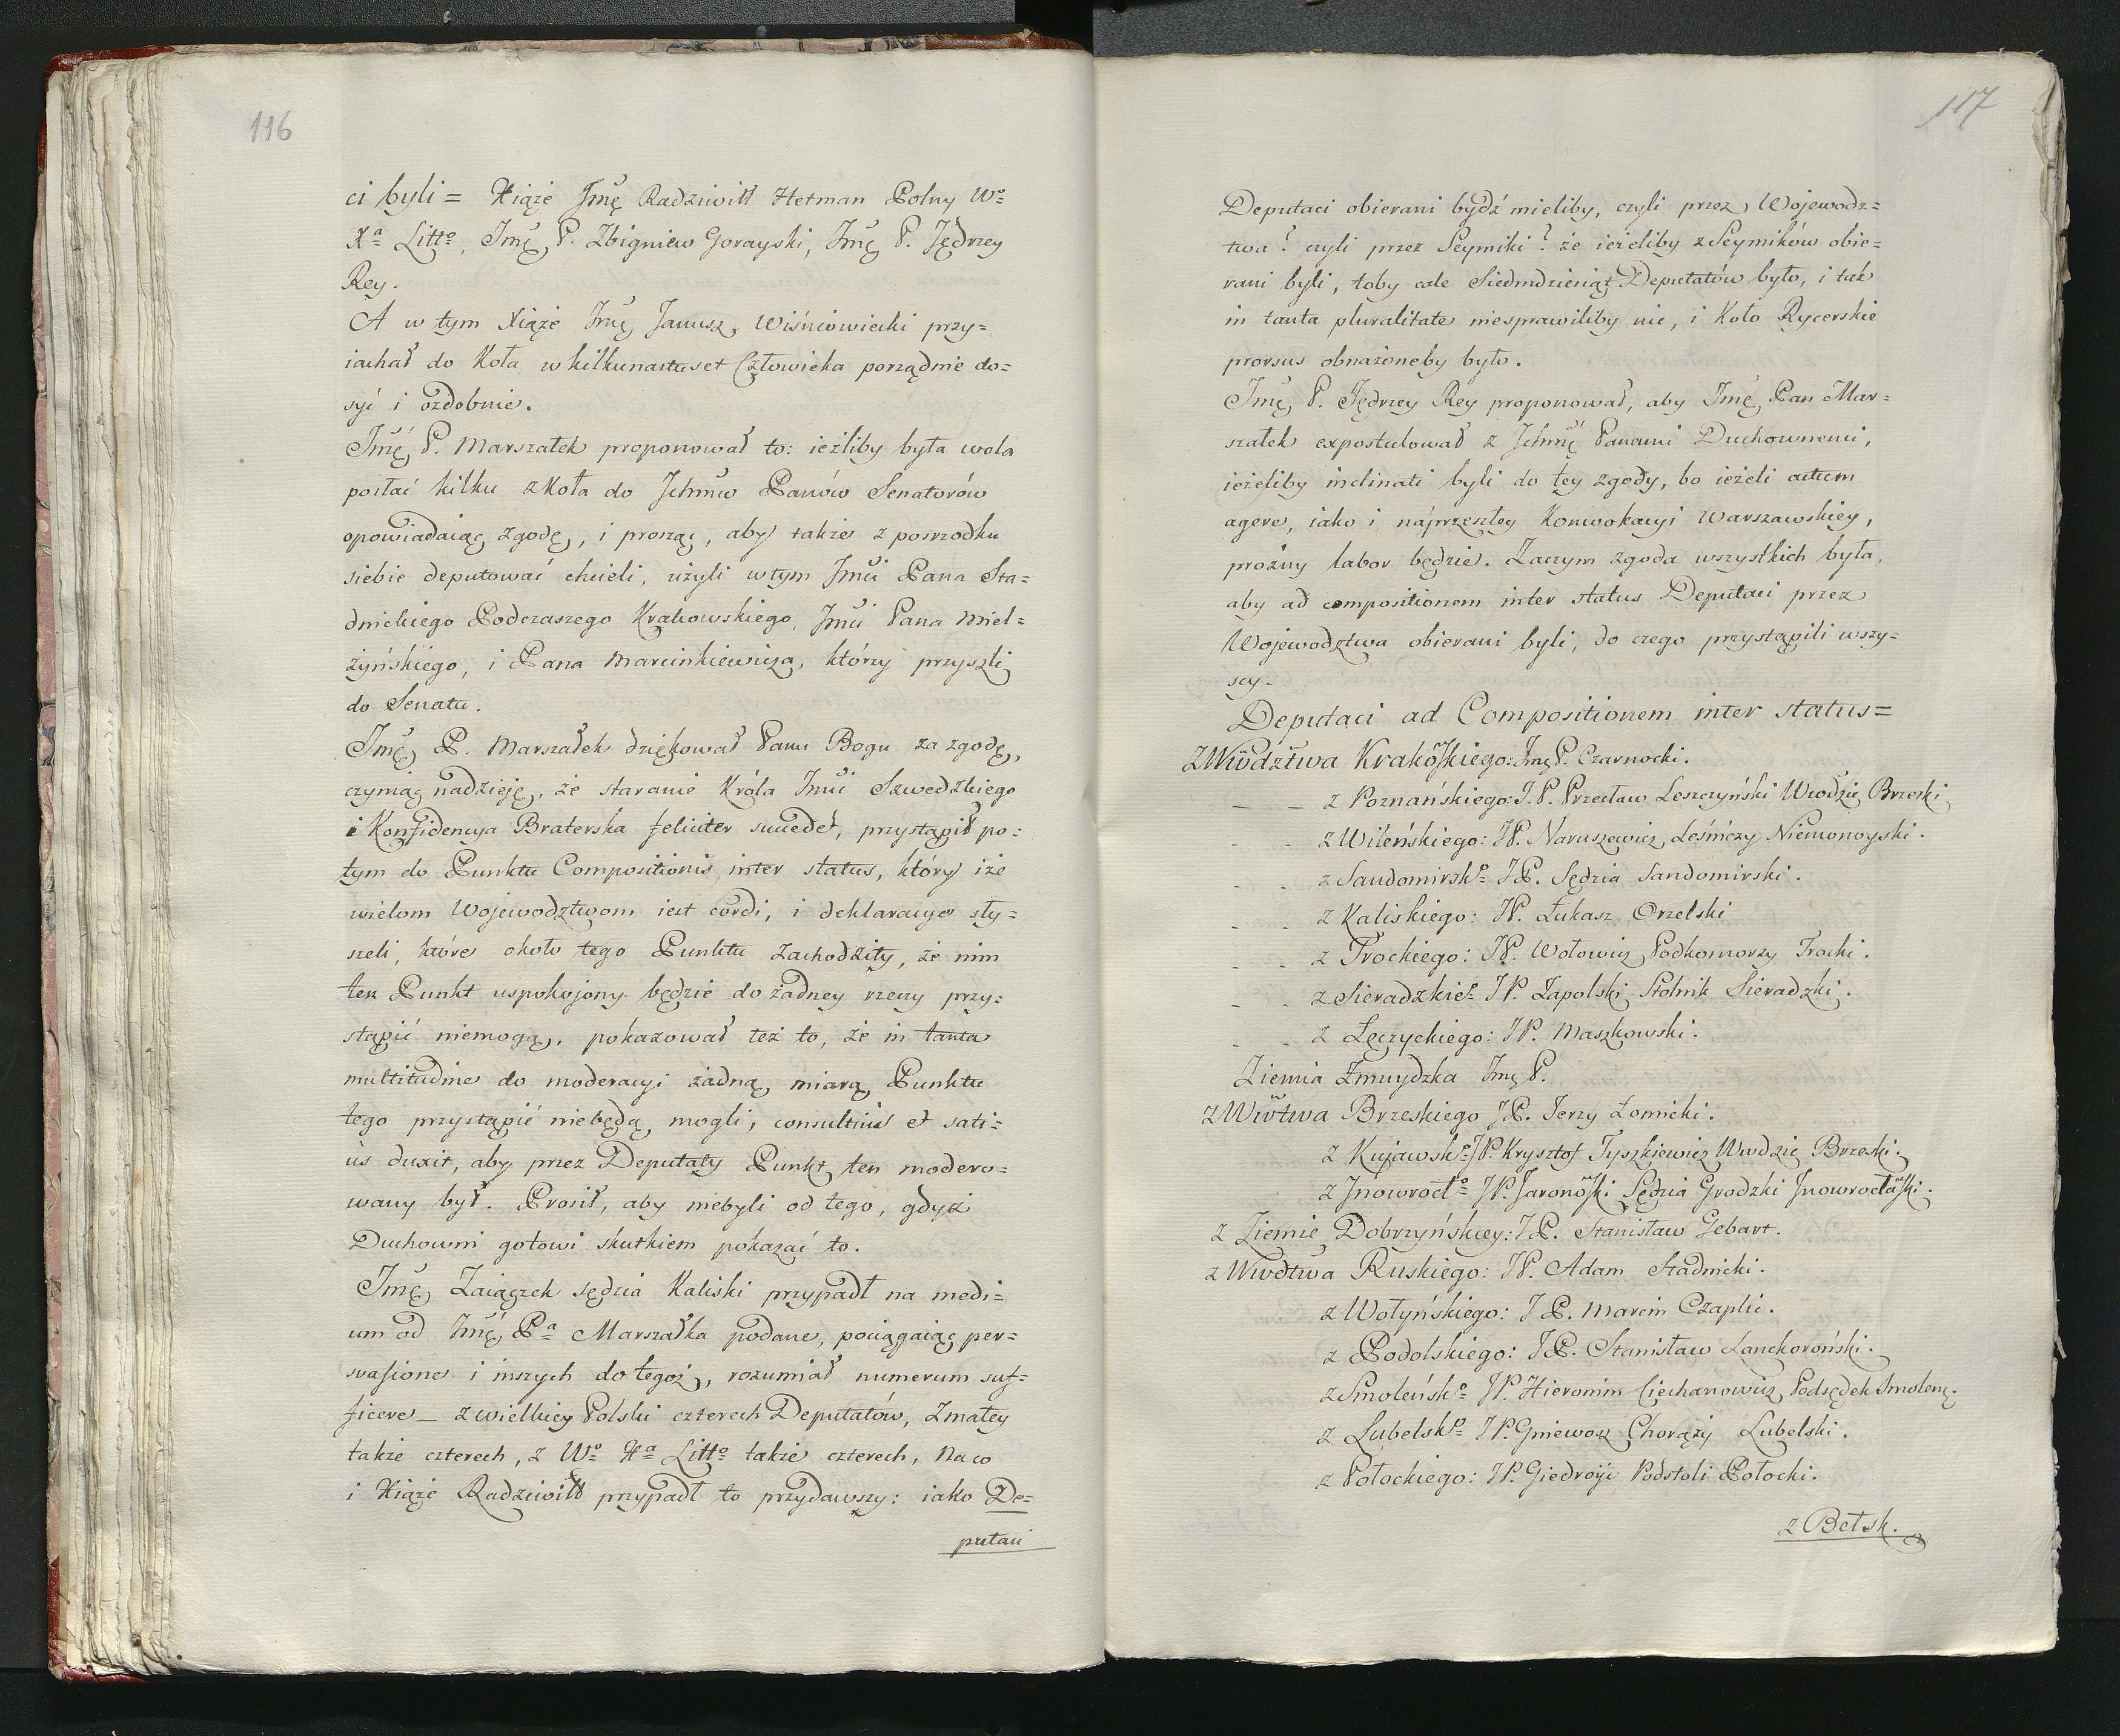 116
ci byli = Xiąże Jmę Radziwiłł Hetman Polny Wº
Xª Littº, Jmę P. Zbigniew Gorayski, Jmę P. Jędrzey
Rey.
A w tym Xiąże Jmę Janusz Wiśniowiecki przy=
iachał do Koła w kilkunastuset Człowieka porządnie do=
syć i ozdobnie.
Jmę P. Marszałek proponował to: ieźliby była wola
posłać kilku z Koła do Jchmw Panów Senatorów
opowiadaiąc zgodę, i prosząc, aby także z posrzodku
siebie deputować chcieli, użyli w tym Jmći Pana Sta=
dnickiego Podczaszego Krakowskiego, Jmći Pana Miel=
żyńskiego, i Pana Marcinkiewicza, którzy przyszli
do Senatu.
Jmę P. Marszałek dziękował Panu Bogu za zgodę,
czyniąc nadzieję, że staranie Króla Jmći Szwedzkiego
i Konfidencya Braterska feliciter succedet, przystąpił po=
tym do Punktu Compositionis inter status, który iże
wielom Wojewodztwom iest cordi, i deklaracye sły=
szeli, które około tego Punktu zachodziły, że nim
ten Punkt uspokojony będzie do żadney rzeczy przy=
stąpić niemogą, pokazował też to, że in tanta
multitudine do moderacyi żadną miarą Punktu
tego przystąpić niebędą mogli, consultius et sati=
us duxit, aby przez Deputaty Punkt ten modero=
wany był. Prosił, aby niebyli od tego, gdyż
Duchowni gotowi skutkiem pokazać to.
Jmę Zaiączek sędzia Kaliski przypadł na medi=
um od Jmę Pª Marszałka podane, pociągaiąc per=
svasione i inszych do tegoż, rozumiał numerum suf=
ficere – z wielkiey Polski czterech Deputatów, z małey
także czterech, z Wº Xª Littº także czterech, na co
i Xiąże Radziwiłł przypadł to przydawszy: iako De=
putaci
117
Deputaci obierani bydź mieliby, czyli przez Wojewodz=
twa? czyli przez Seymiki? że ieżeliby z Seymików obie=
rani byli, toby cale Siedmdziesiąt Deputatów było, i tak
in tanta pluralitate niesprawiliby nic, i Koło Rycerskie
prorsus obnażoneby było.
Jmę P. Jędrzey Rey proponował, aby Jmę Pan Mar=
szałek expostulował z Jchmć Panami Duchownemi,
ieżeliby inclinati byli do tey zgody, bo ieżeli actum
agere, iako i náprzeszłey Konwokacyi Warszawskiey,
prożny labor będzie. Zaczym zgoda wszystkich była,
aby ad compositionem inter status Deputaci przez
Wojewodztwa obierani byli, do czego przystąpili wszy=
scy.
Deputaci ad Compositionem inter status=
z Wwdztwa Krakoskiego: Jmę P. Czarnocki.
– – z Poznańskiego: J. P. Przecław Leszczyński Wwodzic Brzeski
- - z Wileńskiego: JP. Naruszewicz Leśniczy Niemonoyski.
- - z Sandomirskº JP. Sędzia Sandomirski.
- - z Kaliskiego: JP. Łukasz Orzelski
- - z Trockiego: JP. Wołowicz Podkomorzy Trocki.
- - z Sieradzkieº JP. Zapolski Stolnik Sieradzki.
- - z Łęczyckiego: JP. Maszkowski.
Ziemia Zmuydzka Jmę P.
z Wwtwa Brzeskiego JP. Jerzy Łomicki.
z Kujawskº JP. Krysztof Tyszkiewicz Wwdzic Brzeski.
z Jnowrocłº JP. Jaronoski Sędzia Grodzki Jnowrocłaski.
z Ziemie Dobrzyńskiey: JP. Stanisław Gebart.
z Wwdtwa Ruskiego: JP. Adam Stadnicki.
z Wołyńskiego: JP. Marcin Czaplic.
z Podolskiego: JP. Stanisław Lanckoroński.
z Smoleńskº JP. Hieronim Ciechanowicz Podsędek Smoleńs.
z Lubelskº JP. Gniewosz Chorąży Lubelski.
z Połockiego: JP. Giedroyc Podstoli Połocki.
z Bełsk.